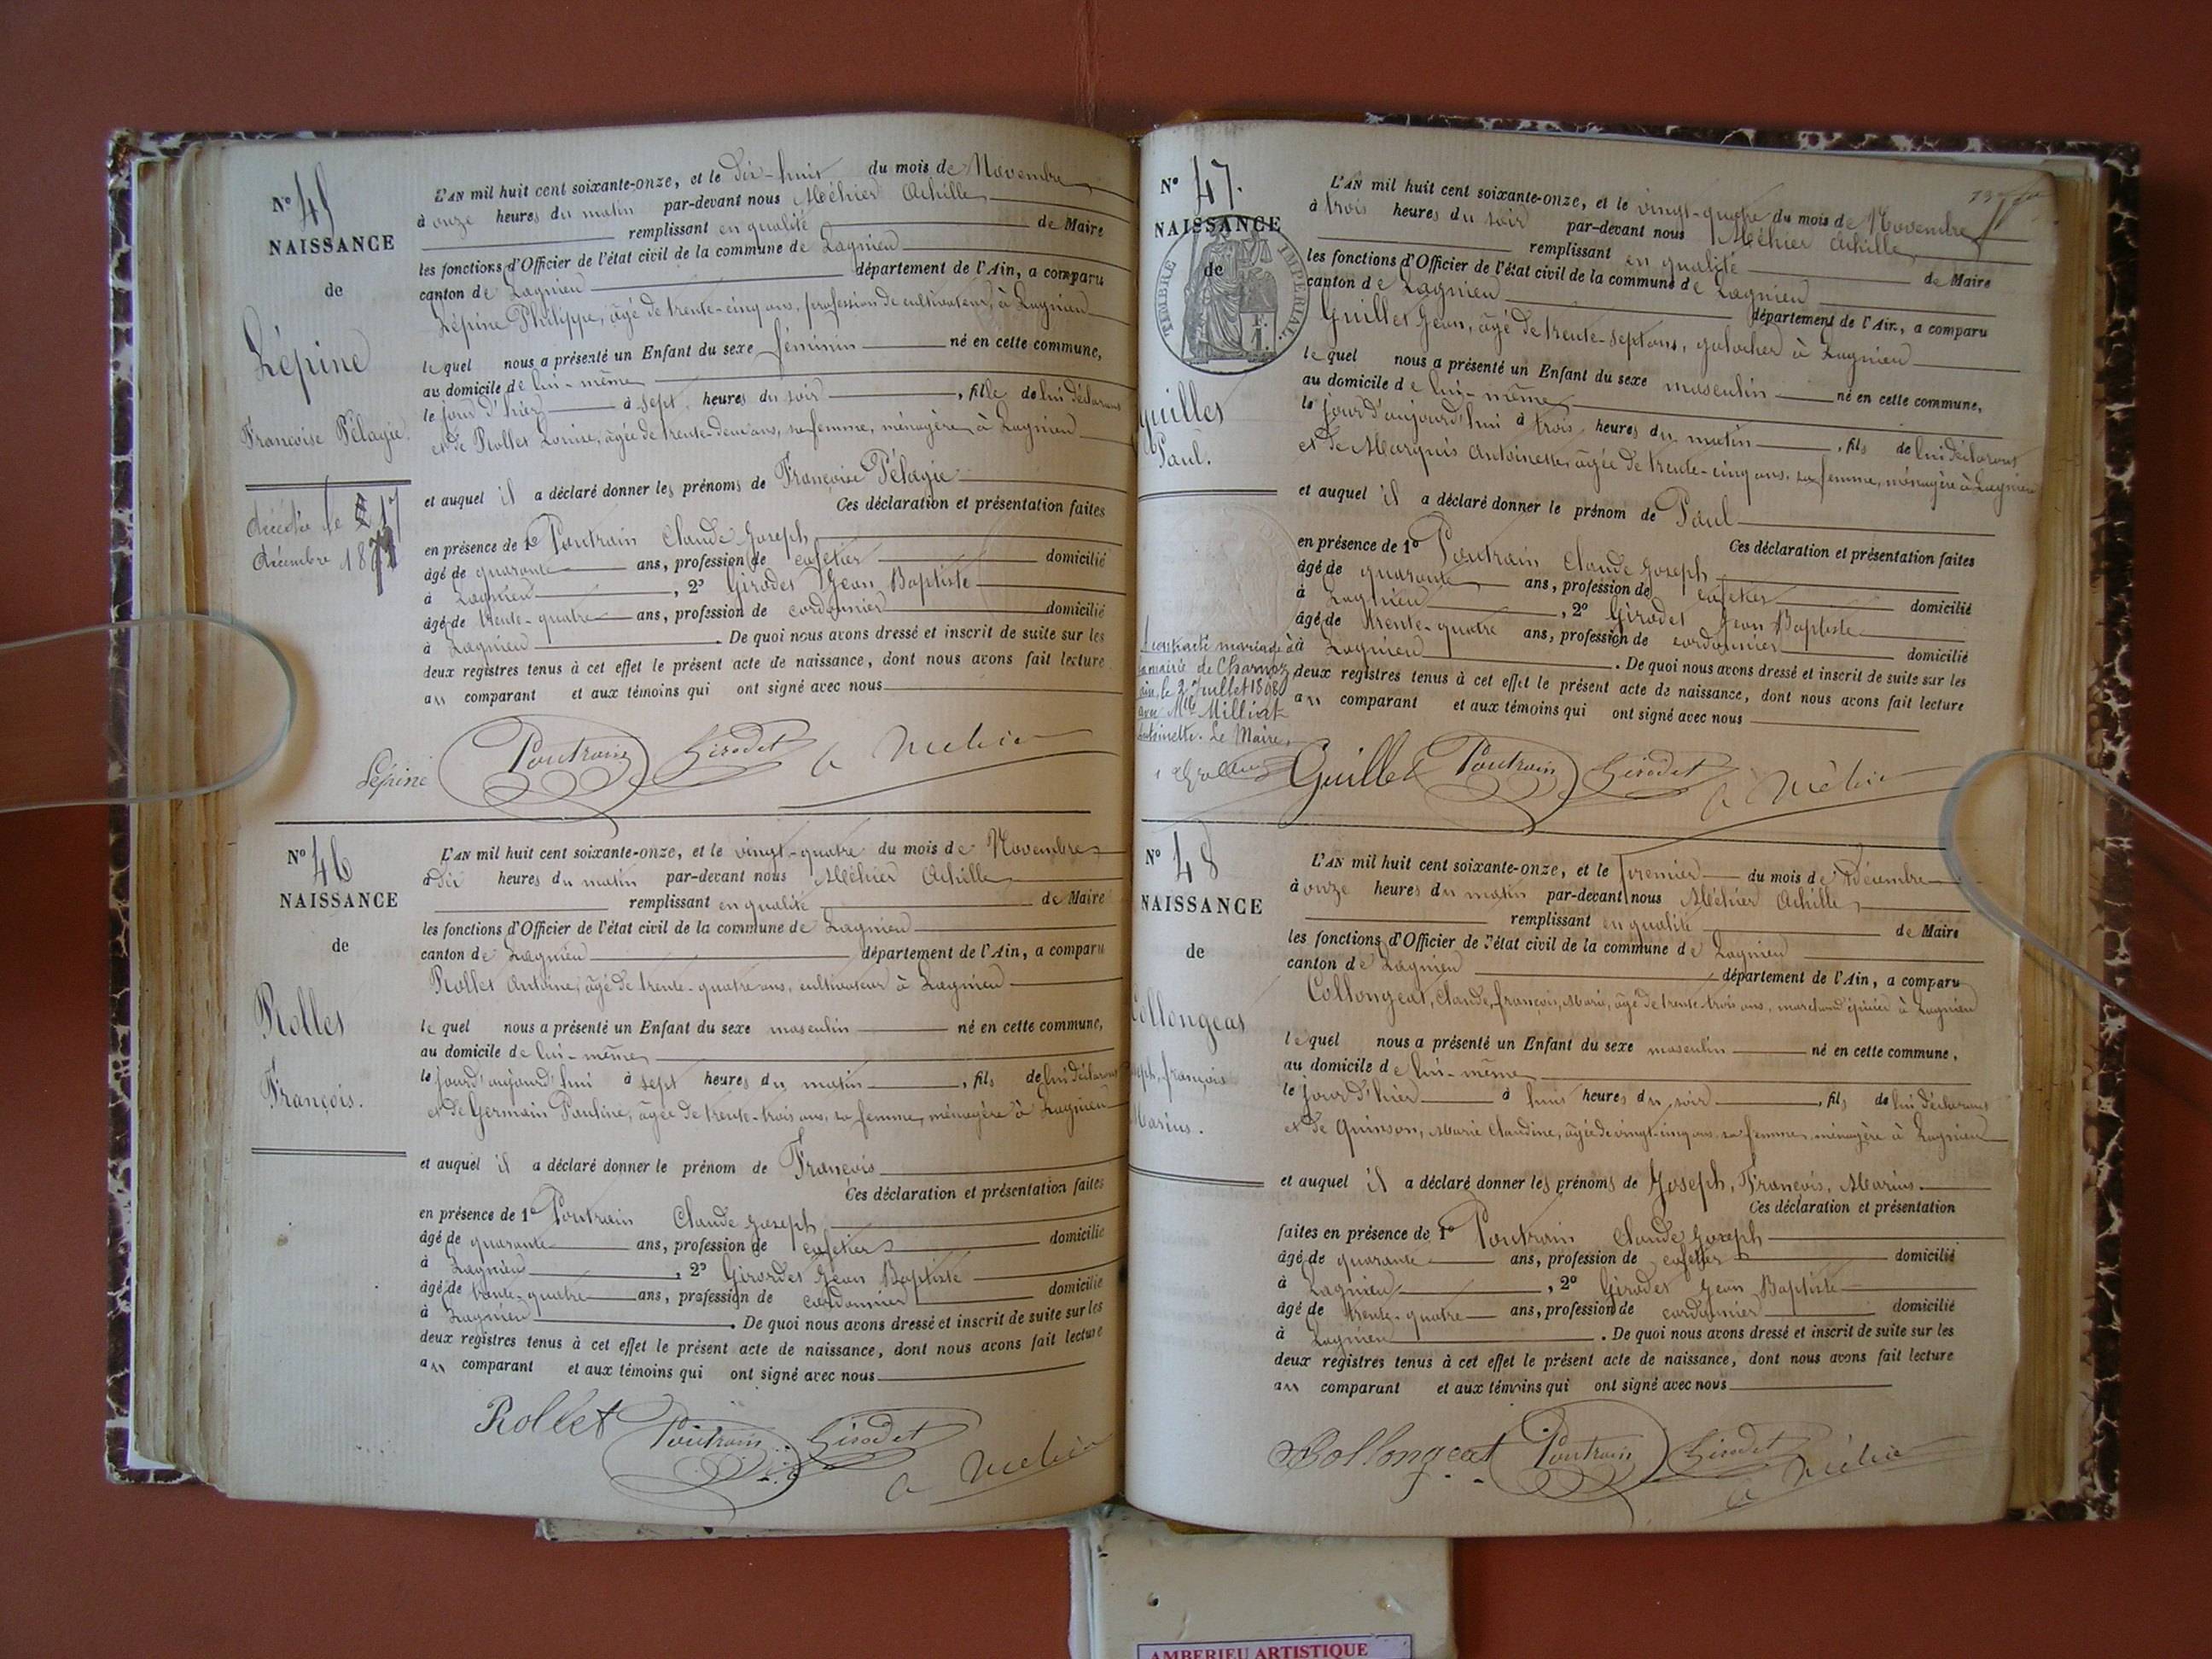 N° 45
NAISSANCE
de
Lépine
Françoise Pélagie.
décédée le 17
décembre 18
L'AN mil huit cent soixante-onze, et le dix-huit du mois de Novembre
à onze heures du matin par-devant nous Méhier Achille
remplissant en qualité de Maire
les fonctions d'Officier de l'état civil de la commune de Lagnieu
canton de Lagnieu département de l'Ain, a comparu
Lépine Philippe, âgé de trente-cinq ans, profession de cultivateur, à Lagnieu
lequel nous a présenté un Enfant du sexe féminin né en cette commune,
au domicile de lui-même
le jour d'hier à sept heures du soir, fille de lui déclarant
et de Rollet Louise, âgée de trente-deux ans, sa femme, ménagère à Lagnieu
et auquel il a déclaré donner les prénoms de Françoise Pélagie
Ces déclaration et présentation faites
en présence de 1° Poutrain Claude Joseph
âgé de quarante ans, profession de cafetier domicilié
à Lagnieu, 2° Girodet Jean Baptiste
âgé de trente-quatre ans, profession de cordonnier domicilié
à Lagnieu. De quoi nous avons dressé et inscrit de suite sur les
deux registres tenus à cet effet le présent acte de naissance, dont nous avons fait lecture
au comparant et aux témoins qui ont signé avec nous
Lépine Poutrain Girodet A Méhier
N° 46
NAISSANCE
de
Rollet
François.
L'AN mil huit cent soixante-onze, et le vingt-quatre du mois de Novembre
à dix heures du matin par-devant nous Méhier Achille
remplissant en qualité de Maire
les fonctions d'Officier de l'état civil de la commune de Lagnieu
canton de Lagnieu département de l'Ain, a comparu
Rollet Antoine, âgé de trente-quatre ans, cultivateur à Lagnieu
lequel nous a présenté un Enfant du sexe masculin né en cette commune,
au domicile de lui-même
le jour d'aujourd'hui à sept heures du matin, fils de lui déclarant
et de Germain Pauline, âgée de trente-trois ans, sa femme, ménagère à Lagnieu
et auquel il a déclaré donner le prénom de François
Ces déclaration et présentation faites
en présence de 1° Poutrain Claude Joseph
âgé de quarante ans, profession de cafetier domicilié
à Lagnieu, 2° Girordet Jean Baptiste
âgé de trente-quatre ans, profession de cordonnier domicilié
à Lagnieu. De quoi nous avons dressé et inscrit de suite sur les
deux registres tenus à cet effet le présent acte de naissance, dont nous avons fait lecture
au comparant et aux témoins qui ont signé avec nous
Rollet Poutrain Girodet A Méhier
N° 47.
NAISSANCE
de
TIMBRE IMPÉRIAL
Guillet
Paul.
contracté mariage à
la mairie de Charnoz
Ain, le 2 Juillet 1898
avec Mlle Milliat
Antoinette. Le Maire,
L'AN mil huit cent soixante-onze, et le vingt-quatre du mois de Novembre
à trois heures du soir par-devant nous Méhier Achille
remplissant en qualité de Maire
les fonctions d'Officier de l'état civil de la commune de Lagnieu
canton de Lagnieu département de l'Ain, a comparu
Guillet Jean, âgé de trente-sept ans, galocher à Lagnieu
lequel nous a présenté un Enfant du sexe masculin né en cette commune,
au domicile de lui-même
le jour d'aujourd'hui à trois heures du matin, fils de lui déclarant
et de Marquis Antoinette, âgée de trente-cinq ans, sa femme, ménagère à Lagnieu
et auquel il a déclaré donner le prénom de Paul
Ces déclaration et présentation faites
en présence de 1° Poutrain Claude Joseph
âgé de quarante ans, profession de cafetier domicilié
à Lagnieu, 2° Girodet Jean Baptiste
âgé de trente-quatre ans, profession de cordonnier domicilié
à Lagnieu. De quoi nous avons dressé et inscrit de suite sur les
deux registres tenus à cet effet le présent acte de naissance, dont nous avons fait lecture
au comparant et aux témoins qui ont signé avec nous
Guillet Poutrain Girodet A Méhier
N° 48
NAISSANCE
de
Collongeat
Joseph, françois
Marius.
L'AN mil huit cent soixante-onze, et le premier du mois de décembre
à onze heures du matin par-devant nous Méhier Achille
remplissant en qualité de Maire
les fonctions d'Officier de l'état civil de la commune de Lagnieu
canton de Lagnieu département de l'Ain, a comparu
Collongeat, Claude, françois, Marie, âgé de trente-trois ans, marchand épicier à Lagnieu
lequel nous a présenté un Enfant du sexe masculin né en cette commune,
au domicile de lui-même
le jour d'hier à huit heures du soir, fils de lui déclarant
et de Quinson, Marie Claudine, âgée de vingt-cinq ans, sa femme, ménagère à Lagnieu
et auquel il a déclaré donner les prénoms de Joseph, François, Marius.
Ces déclaration et présentation
faites en présence de 1° Poutrain Claude Joseph
âgé de quarante ans, profession de cafetier domicilié
à Lagnieu, 2° Girodet Jean Baptiste
âgé de trente-quatre ans, profession de cordonnier domicilié
à Lagnieu. De quoi nous avons dressé et inscrit de suite sur les
deux registres tenus à cet effet le présent acte de naissance, dont nous avons fait lecture
au comparant et aux témoins qui ont signé avec nous
Collongeat Poutrain Girodet A Méhier
AMBERIEU ARTISTIQUE